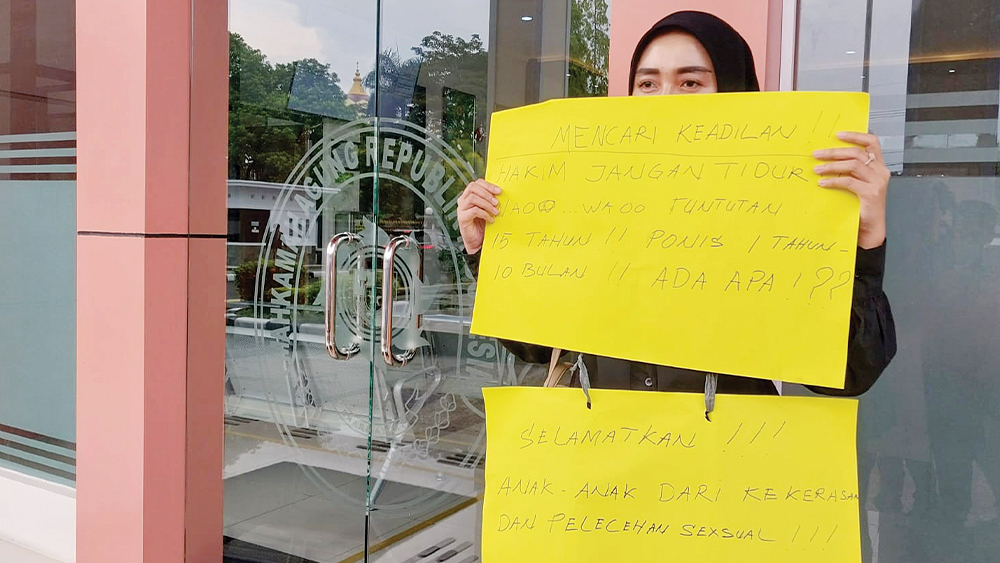 MAHKAMAH AGUNG REPUBLIK
MENCARI KEADILAN !!
HAKIM JANGAN TIDUR
WAOO...WAOO TUNTUTAN
15 TAHUN !! PONIS 1 TAHUN-
10 BULAN !! ADA APA !??
SELAMATKAN !!!
ANAK-ANAK DARI KEKERASAN
DAN PELECEHAN SEXSUAL !!!